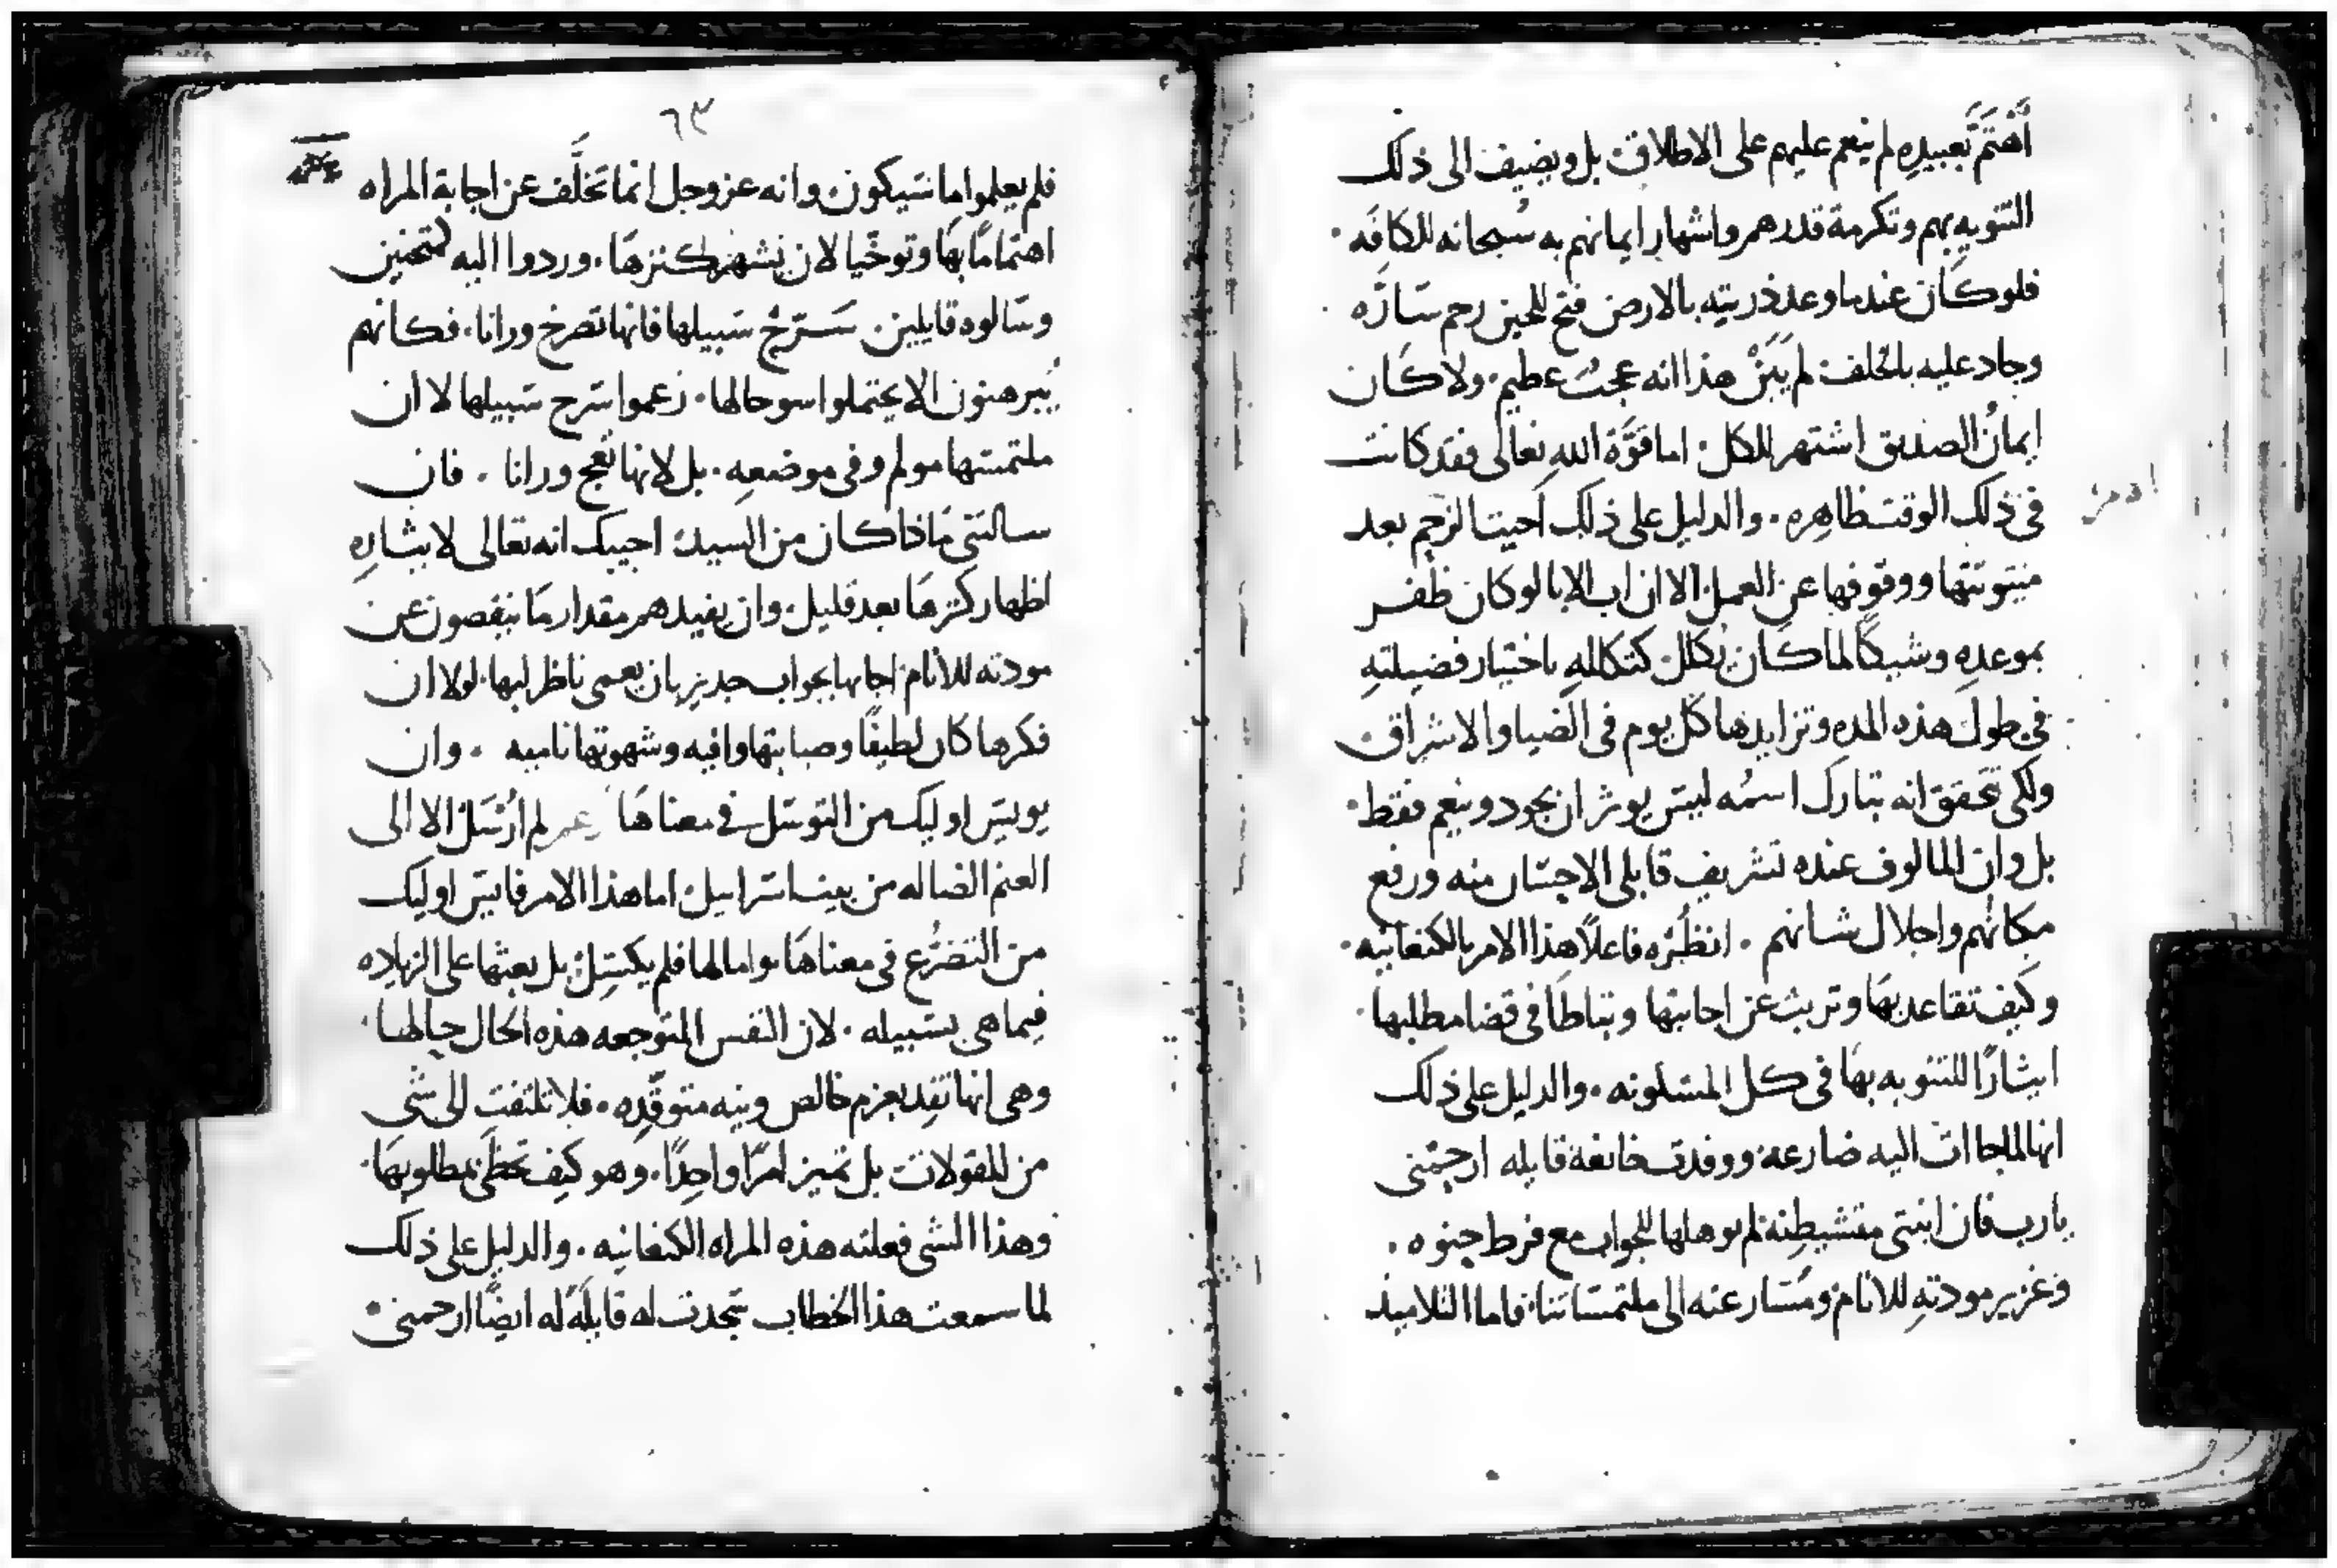 أهتم بعبيده لم ينعم عليهم على الاطلاق بل ويضيف الى ذلك
التنويه بهم وتكرمة قدرهم واشهار ايمانهم به سبحانه للكافه .
فلو كان عندما وعد ذريته بالارض فتح للحين رحم ساره
وجاد عليه بالخلف لم يبن هذا انه عجب عظيم . ولا كان
ايمان الصديق اشتهر للكل . اما قوة الله تعالى فقد كانت
في ذلك الوقت ظاهره . والدليل على ذلك احيت الرحم بعد
ميتوتتها ووقوفها عن العمل الا ان اب الابا لو كان ظفر
بموعده وشيكًا لما كان تكلل كتكلله باختيار فضيلته
في طول هذه المده وتزايدها كل يوم في الضيا والاشراق .
ولكي تحقق انه تبارك اسمه ليس يوثر ان يجود وينعم فقط .
بل وان المالوف عنده تشريف قابلي الاحسان منه ورفع
مكانهم واجلال شانهم . انظره فاعلاً هذا الامر بالكنعانيه .
وكيف تقاعد بها وتريث عن اجابتها وتباطا في قضا مطلبها .
ايثارًا للتنويه بها في كل المسكونه . والدليل على ذلك
انها لما جاات اليه ضارعة ووفدت خانعة قايله ارحمني
يارب فان ابنتي متشيطنه لم يوهلها للجواب مع فرط حنوه .
وغزير مودته للانام ومسارعته الى ملتمساتنا . فاما التلاميذ
٦٣
فلم يعلموا ما سيكون وانه عز وجل انما تخلف عن اجابة المراه
اهتمامًا بها وتوخيا لان يشهر كنزها . وردوا اليه متحننين
وسالوه قايلين . سرح سبيلها فانها تصرخ ورانا . فكانهم
يبرهنون الا يحتملوا سو حالها . زعموا سرح سبيلها لا ان
ملتمسها مولم وفي موضعه . بل لانها تعج ورانا . فان
سالتني ماذا كان من السيد اجيبك انه تعالى لايثاره
اظهار كنزها بعد قليل . وان يفيدهم مقدار ما ينقصون عن
مودته للانام اجابها بجواب جدير بان يعمي ناظر لبها . لولا ان
فكرها كان لطيفًا وصبابتها وافيه وشهوتها ناميه . وان
يويس اوليك من التوسل في معناها زعم لم ارسل الا الى
الغنم الضاله من بيت اسرائيل . اما هذا الامر فايس اوليك
من التضرع في معناها واما لها فلم يكسل بل بعثها على الزياده
فيما هي بسبيله . لان النفس المتوجعه هذه الحال حالها .
وهي انها تفد بعزم خالص ونيه متوقده . فلا تلتفت الى شي
من المقولات بل تميز امرًا واحدًا . وهو كيف تحظى بمطلوبها .
وهذا الشي فعلته هذه المراه الكنعانيه . والدليل على ذلك
لما سمعت هذا الخطاب سجدت له قايلة له ايضًا ارحمني .